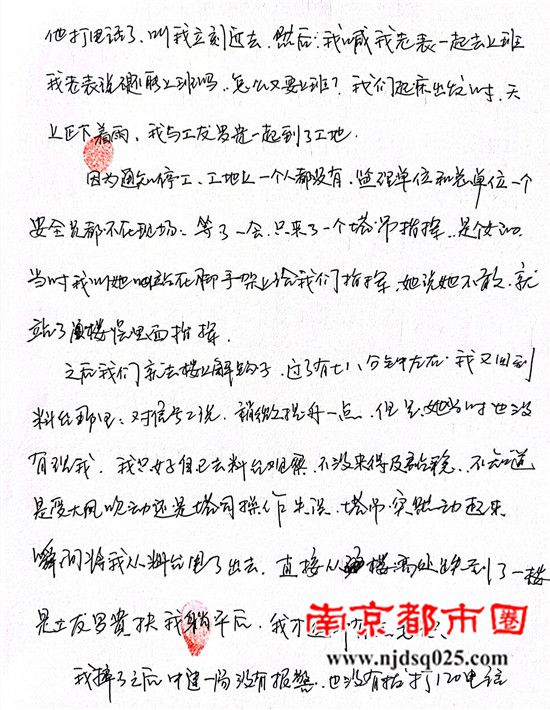 他打电话了,叫我立刻过去,然后:我喊我老表一起去上班
我老表说都上班吗,怎么又要上班?我们起床出发时,天
上正下着雨,我与工友罗贵一起到了工地.
因为通知停工、工地上一个人都没有,监理单位和总单位一个
安全员都不在现场:等了一会,只来了一个塔吊指挥,是个女的,
当时我叫她站在脚手架上给我们指挥,她说她不敢,就
站了楼层里面指挥.
之后我们就去楼上解钩子,过了有七八分钟左右,我又回到
料台那里:对信号工说,稍微提升一点,但是,她当时也没
有理我,我只好自己去料台观察,还没来得及站稳,不知道
是受大风吹动还是塔司操作失误,塔吊突然动起来
瞬间将我从料台甩了出去,直接从楼高处跌到了一楼
是工友罗贵扶我躺平后,我才
我摔了之后中建一局没有报警,也没有拨打120电话
南京都市圈
www.njdsq025.com